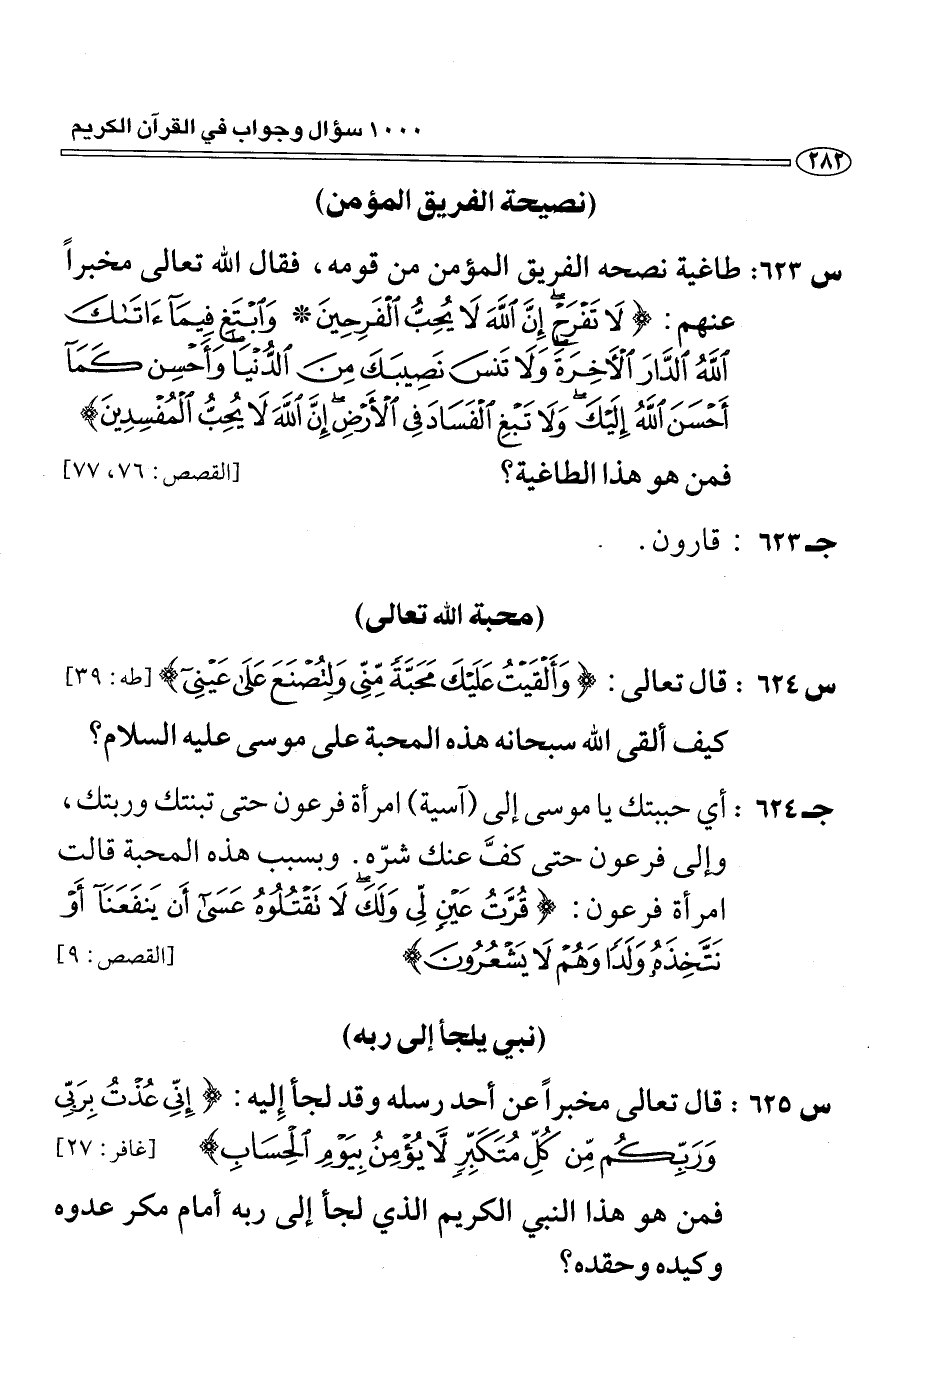 ١٠٠٠ سؤال وجواب في القرآن الكريم
٢٨٢
(نصيحة الفريق المؤمن)
س ٦٢٣: طاغية نصحه الفريق المؤمن من قومه، فقال الله تعالى مخبراً
عنهم: ﴿ لَا تَفْرَحْ ۖ إِنَّ ٱللَّهَ لَا يُحِبُّ ٱلْفَرِحِينَ * وَٱبْتَغِ فِيمَآ ءَاتَىٰكَ
ٱللَّهُ ٱلدَّارَ ٱلْأَخِرَةَ ۖ وَلَا تَنسَ نَصِيبَكَ مِنَ ٱلدُّنْيَا ۖ وَأَحْسِن كَمَآ
أَحْسَنَ ٱللَّهُ إِلَيْكَ ۖ وَلَا تَبْغِ ٱلْفَسَادَ فِى ٱلْأَرْضِ ۖ إِنَّ ٱللَّهَ لَا يُحِبُّ ٱلْمُفْسِدِينَ﴾
فمن هو هذا الطاغية؟ [القصص: ٧٦، ٧٧]
جـ ٦٢٣ : قارون.
(محبة الله تعالى)
س ٦٢٤ : قال تعالى: ﴿ وَأَلْقَيْتُ عَلَيْكَ مَحَبَّةً مِّنِّى وَلِتُصْنَعَ عَلَىٰ عَيْنِىٓ﴾ [طه: ٣٩]
كيف ألقى الله سبحانه هذه المحبة على موسى عليه السلام؟
جـ ٦٢٤ : أي حببتك يا موسى إلى (آسية) امرأة فرعون حتى تبنتك وربتك،
وإلى فرعون حتى كفَّ عنك شرّه. وبسبب هذه المحبة قالت
امرأة فرعون: ﴿ قُرَّتُ عَيْنٍ لِّى وَلَكَ ۖ لَا تَقْتُلُوهُ عَسَىٰٓ أَن يَنفَعَنَآ أَوْ
نَتَّخِذَهُۥ وَلَدًا وَهُمْ لَا يَشْعُرُونَ﴾ [القصص: ٩]
(نبي يلجأ إلى ربه)
س ٦٢٥ : قال تعالى مخبراً عن أحد رسله وقد لجأ إليه: ﴿ إِنِّى عُذْتُ بِرَبِّى
وَرَبِّكُم مِّن كُلِّ مُتَكَبِّرٍ لَّا يُؤْمِنُ بِيَوْمِ ٱلْحِسَابِ﴾ [غافر: ٢٧]
فمن هو هذا النبي الكريم الذي لجأ إلى ربه أمام مكر عدوه
وكيده وحقده؟